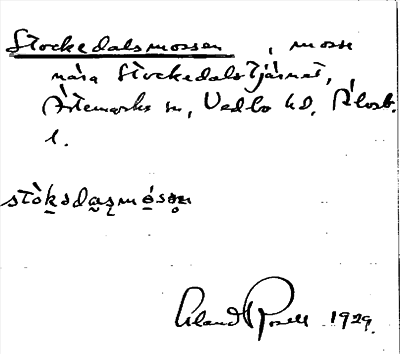 Stockedalsmossen, mosse
nära Stockedalstjärnet,
Ärtemarks sn, Vedbo hd, Älvsb.
l.
stòksdasmósən
Erland Rosell 1929.